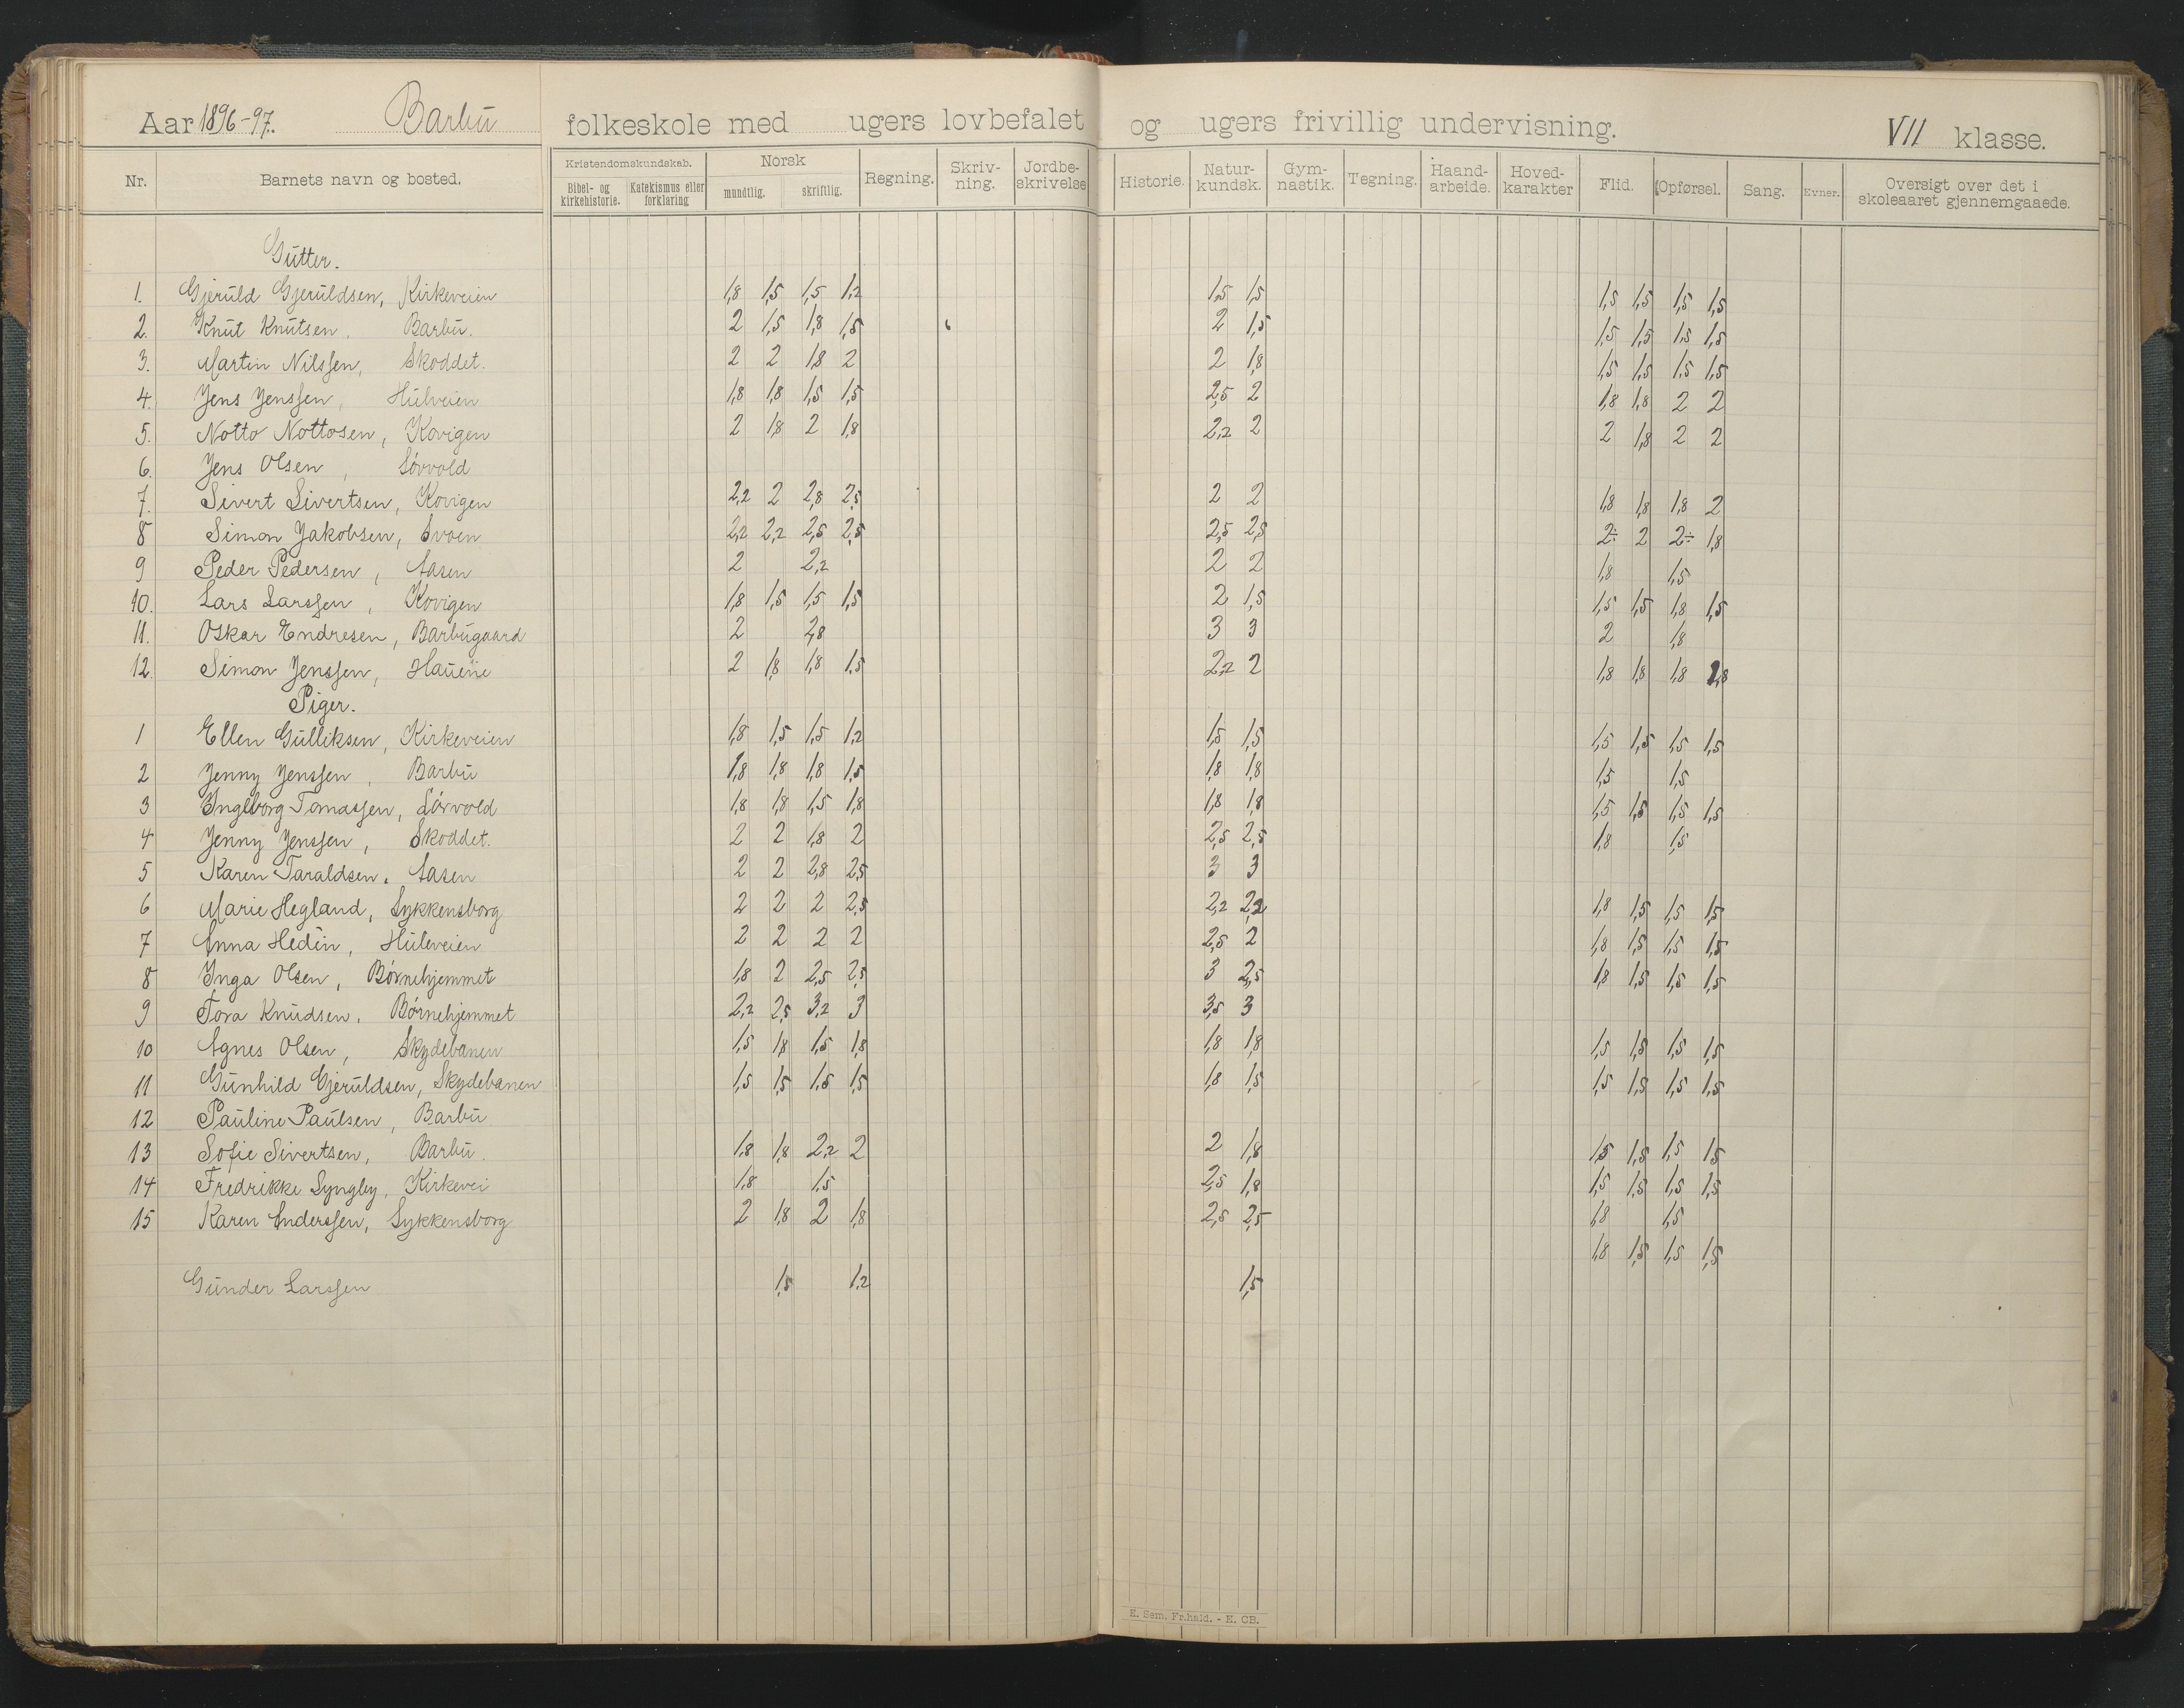 Aar 1896-97. Barbu folkeskole med ugers lovbefalet og ugers frivillig undervisning. VII klasse.
Nr. Barnets navn og bosted. Kristendomskundskab. Bibel- og kirkehistorie. Katekismus eller forklaring Norsk mundtlig. skriftlig. Regning. Skriv-ning. Jordbe-skrivelse Historie. Natur-kundsk. Gym-nastik. Tegning. Haand-arbeide. Hoved-karakter Flid. Opførsel. Sang. Evner. Oversigt over det i skoleaaret gjennemgaaede.
Gutter.
1. Gjeruld Gjeruldsen, Kirkeveien 1,8 1,5 1,5 1,2 1,5 1,5 1,5 1,5 1,5 1,5
2. Knut Knutsen, Barbu. 2 1,5 1,8 1,5 2 1,5 1,5 1,5 1,5 1,5
3. Martin Nilssen, Skoddet. 2 2 1,8 2 2 1,8 1,5 1,5 1,5 1,5
4. Jens Jenssen, Hulveien 1,8 1,8 1,5 1,5 2,5 2 1,8 1,8 2 2
5. Notto Nottosen, Kovigen 2 1,8 2 1,8 2,2 2 2 1,8 2 2
6. Jens Olsen, Sørvold
7. Sivert Sivertsen, Kovigen 2,2 2 2,8 2,5 2 2 1,8 1,8 1,8 2
8 Simon Jakobsen, Svoen 2,2 2,2 2,5 2,5 2,5 2,5 2÷ 2 2÷ 1,8
9 Peder Pedersen, Aasen 2 2,2 2 2 1,8 1,5
10. Lars Larssen, Kovigen 1,8 1,5 1,5 1,5 2 1,5 1,5 1,5 1,8 1,5
11. Oskar Endresen, Barbugaard 2 2,8 3 3 2 1,8
12. Simon Jenssen, 2 1,8 1,8 1,5 2,2 2 1,8 1,8 1,8 1,8
Piger.
1 Ellen Gulliksen, Kirkeveien 1,8 1,5 1,5 1,2 1,5 1,5 1,5 1,5 1,5 1,5
2 Jenny Jenssen, Barbu 1,8 1,8 1,8 1,5 1,8 1,8 1,5 1,5
3 Ingeborg Tomassen, Sørvold 1,8 1,8 1,5 1,8 1,8 1,8 1,5 1,5 1,5 1,5
4 Jenny Jenssen, Skoddet. 2 2 1,8 2 2,5 2,5 1,8 1,5
5 Karen Taraldsen, Aasen 2 2 2,8 2,5 3 3
6 Marie Hegland, Lykkensborg 2 2 2 2,5 2,2 2,2 1,8 1,5 1,5 1,5
7 Anna Hedin, Hulveien 2 2 2 2 2,5 2 1,8 1,5 1,5 1,5
8 Inga Olsen, Børnehjemmet 1,8 2 2,5 2,5 3 2,5 1,8 1,5 1,5 1,5
9 Tora Knudsen, Børnehjemmet 2,2 2,5 3,2 3 3,5 3
10 Agnes Olsen, Skydebanen 1,5 1,8 1,5 1,8 1,8 1,8 1,5 1,5 1,5 1,5
11 Gunhild Gjeruldsen, Skydebanen 1,5 1,5 1,5 1,5 1,8 1,5 1,5 1,5 1,5 1,5
12 Pauline Paulsen, Barbu
13 Sofie Sivertsen, Barbu. 1,8 1,8 2,2 2 2 1,8 1,5 1,5 1,5 1,5
14 Fredrikke Lyngby, Kirkevei 1,8 1,5 2,5 1,8 1,5 1,5 1,5 1,5
15 Karen Anderssen, Lykkensborg 2 1,8 2 1,8 2,5 2,5 1,8 1,5
1,8 1,5 1,5 1,5
Gunder Larssen 1,5 1,2 1,5
E. Sem, Fr.hald. - E. CB.